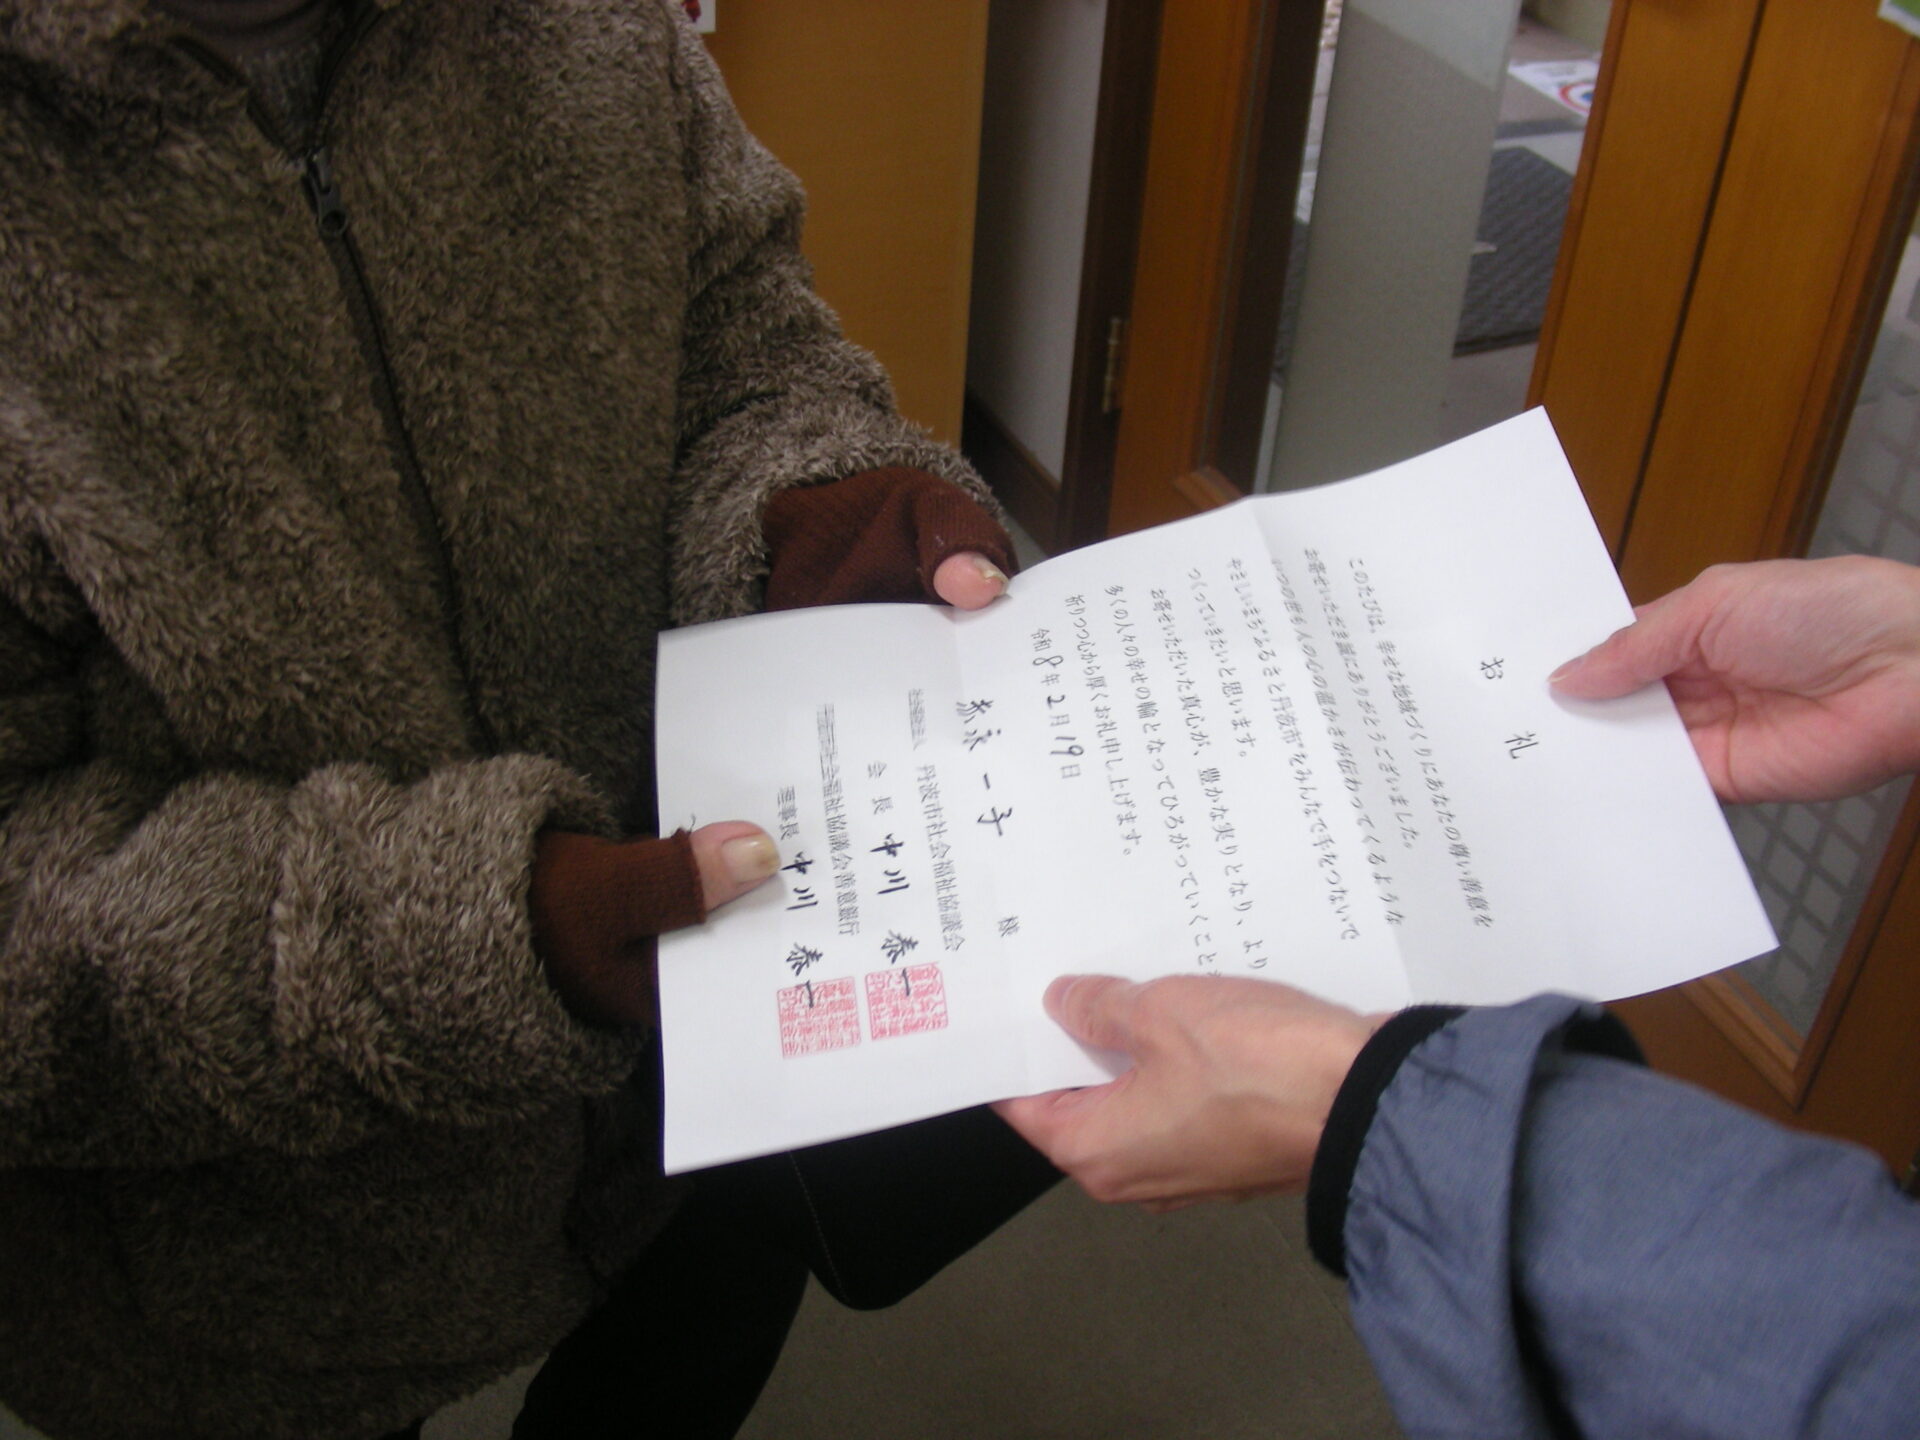 お礼
このたびは、幸せな地域づくりにあなたの尊い善意を
お寄せいただき誠にありがとうございました。
いつの世も人の心の温かさが伝わってくるような
やさしいまち“ふるさと丹波市”をみんなで手をつないで
つくっていきたいと思います。
お寄せいただいた真心が、豊かな実りとなり、より
多くの人々の幸せの輪となってひろがっていくこと
祈りつつ心から厚くお礼申し上げます。
令和8年2月19日
一子 様
社会福祉法人 丹波市社会福祉協議会
会長 中川 泰一
丹波市社会福祉協議会善意銀行
理事長 中川 泰一